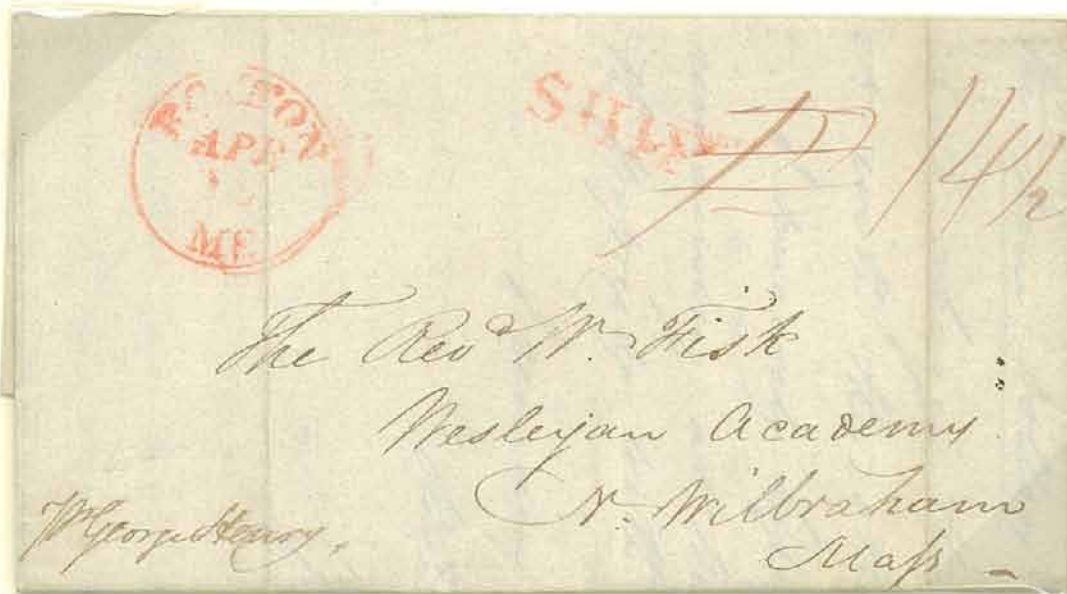 BOSTON
APR
MS
SHIP
14 1/2
The Revd W. Fisk
Wesleyan Academy.
N. Wilbraham
Mass
Pr George Henry,